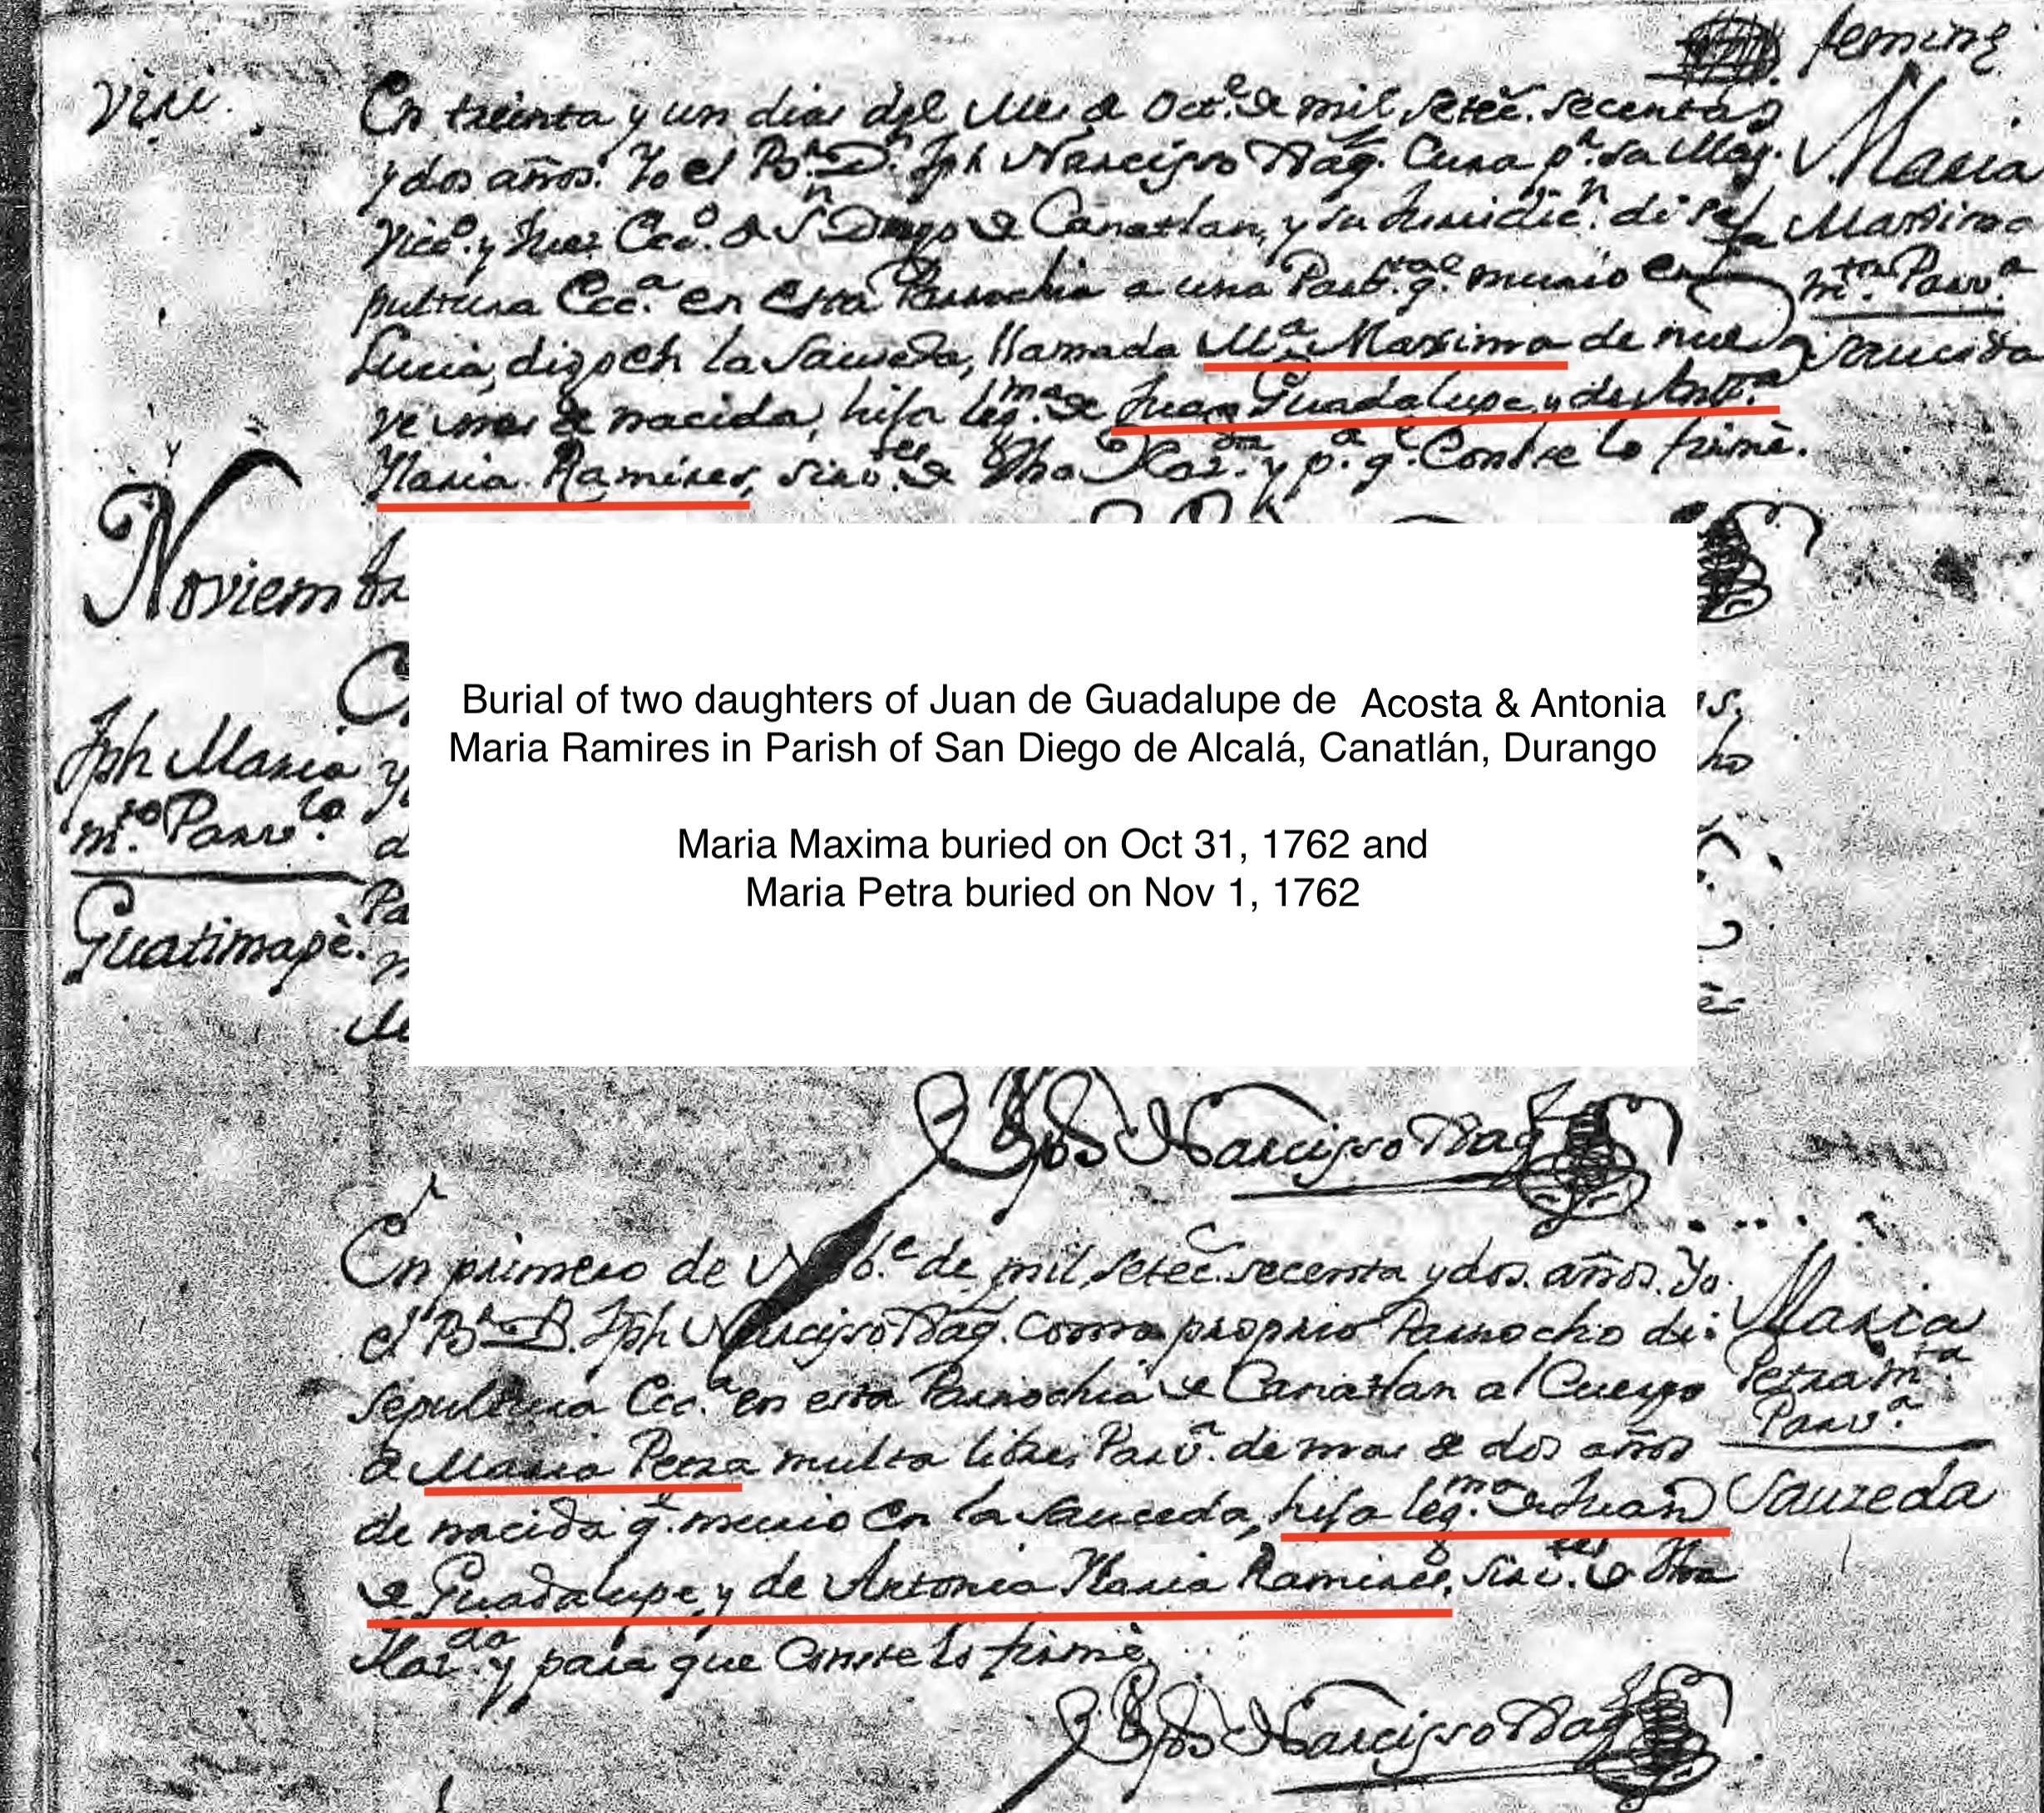 femine
Vixi.
En treinta y un dias del Mes de Oct.e de mil setec. secentas
y dos años. Yo el B.r D.n Jph Narcisso Cura p.r su Mag.
Vic.o y Juez Ecc.o de S.n Diego de Canatlan, y su Juridic.n di se
pultura Ecc.a en esta Parrochia a una q.e murio en
Lucia, digo en la Sauseda, llamada M.a Maxima de nue
ve mes de nacida, hija leg.ma de Juan Guadalupe y de Ant.a
Maria Ramires, sirv.tes de dha Haz.da y p.a q.e Conste lo firmè.
Maria
Maxima
m.ta Parv.a
Noviembr
Burial of two daughters of Juan de Guadalupe de Acosta & Antonia
Maria Ramires in Parish of San Diego de Alcalá, Canatlán, Durango
Maria Maxima buried on Oct 31, 1762 and
Maria Petra buried on Nov 1, 1762
Jph Maria
m.to Parv.lo
Guatimapè.
Narcisso
En primero de de mil setec. secenta y dos años. Yo
el B.r D. Jph Narcisso como proprio Parrocho di
sepultura Ecc.a en esta Parrochia de Canatlan al Cuerpo
de Maria Petra mulata libre, Parv.a de mas de dos años
de nacida q.e murio en la Sauceda, hija leg.ma de Juan
de Guadalupe, y de Antonia Maria Ramires, sirv.tes de dha
Haz.da y para que Conste lo firmè.
Maria
Petra m.ta
Parv.a
Sauzeda
Narcisso